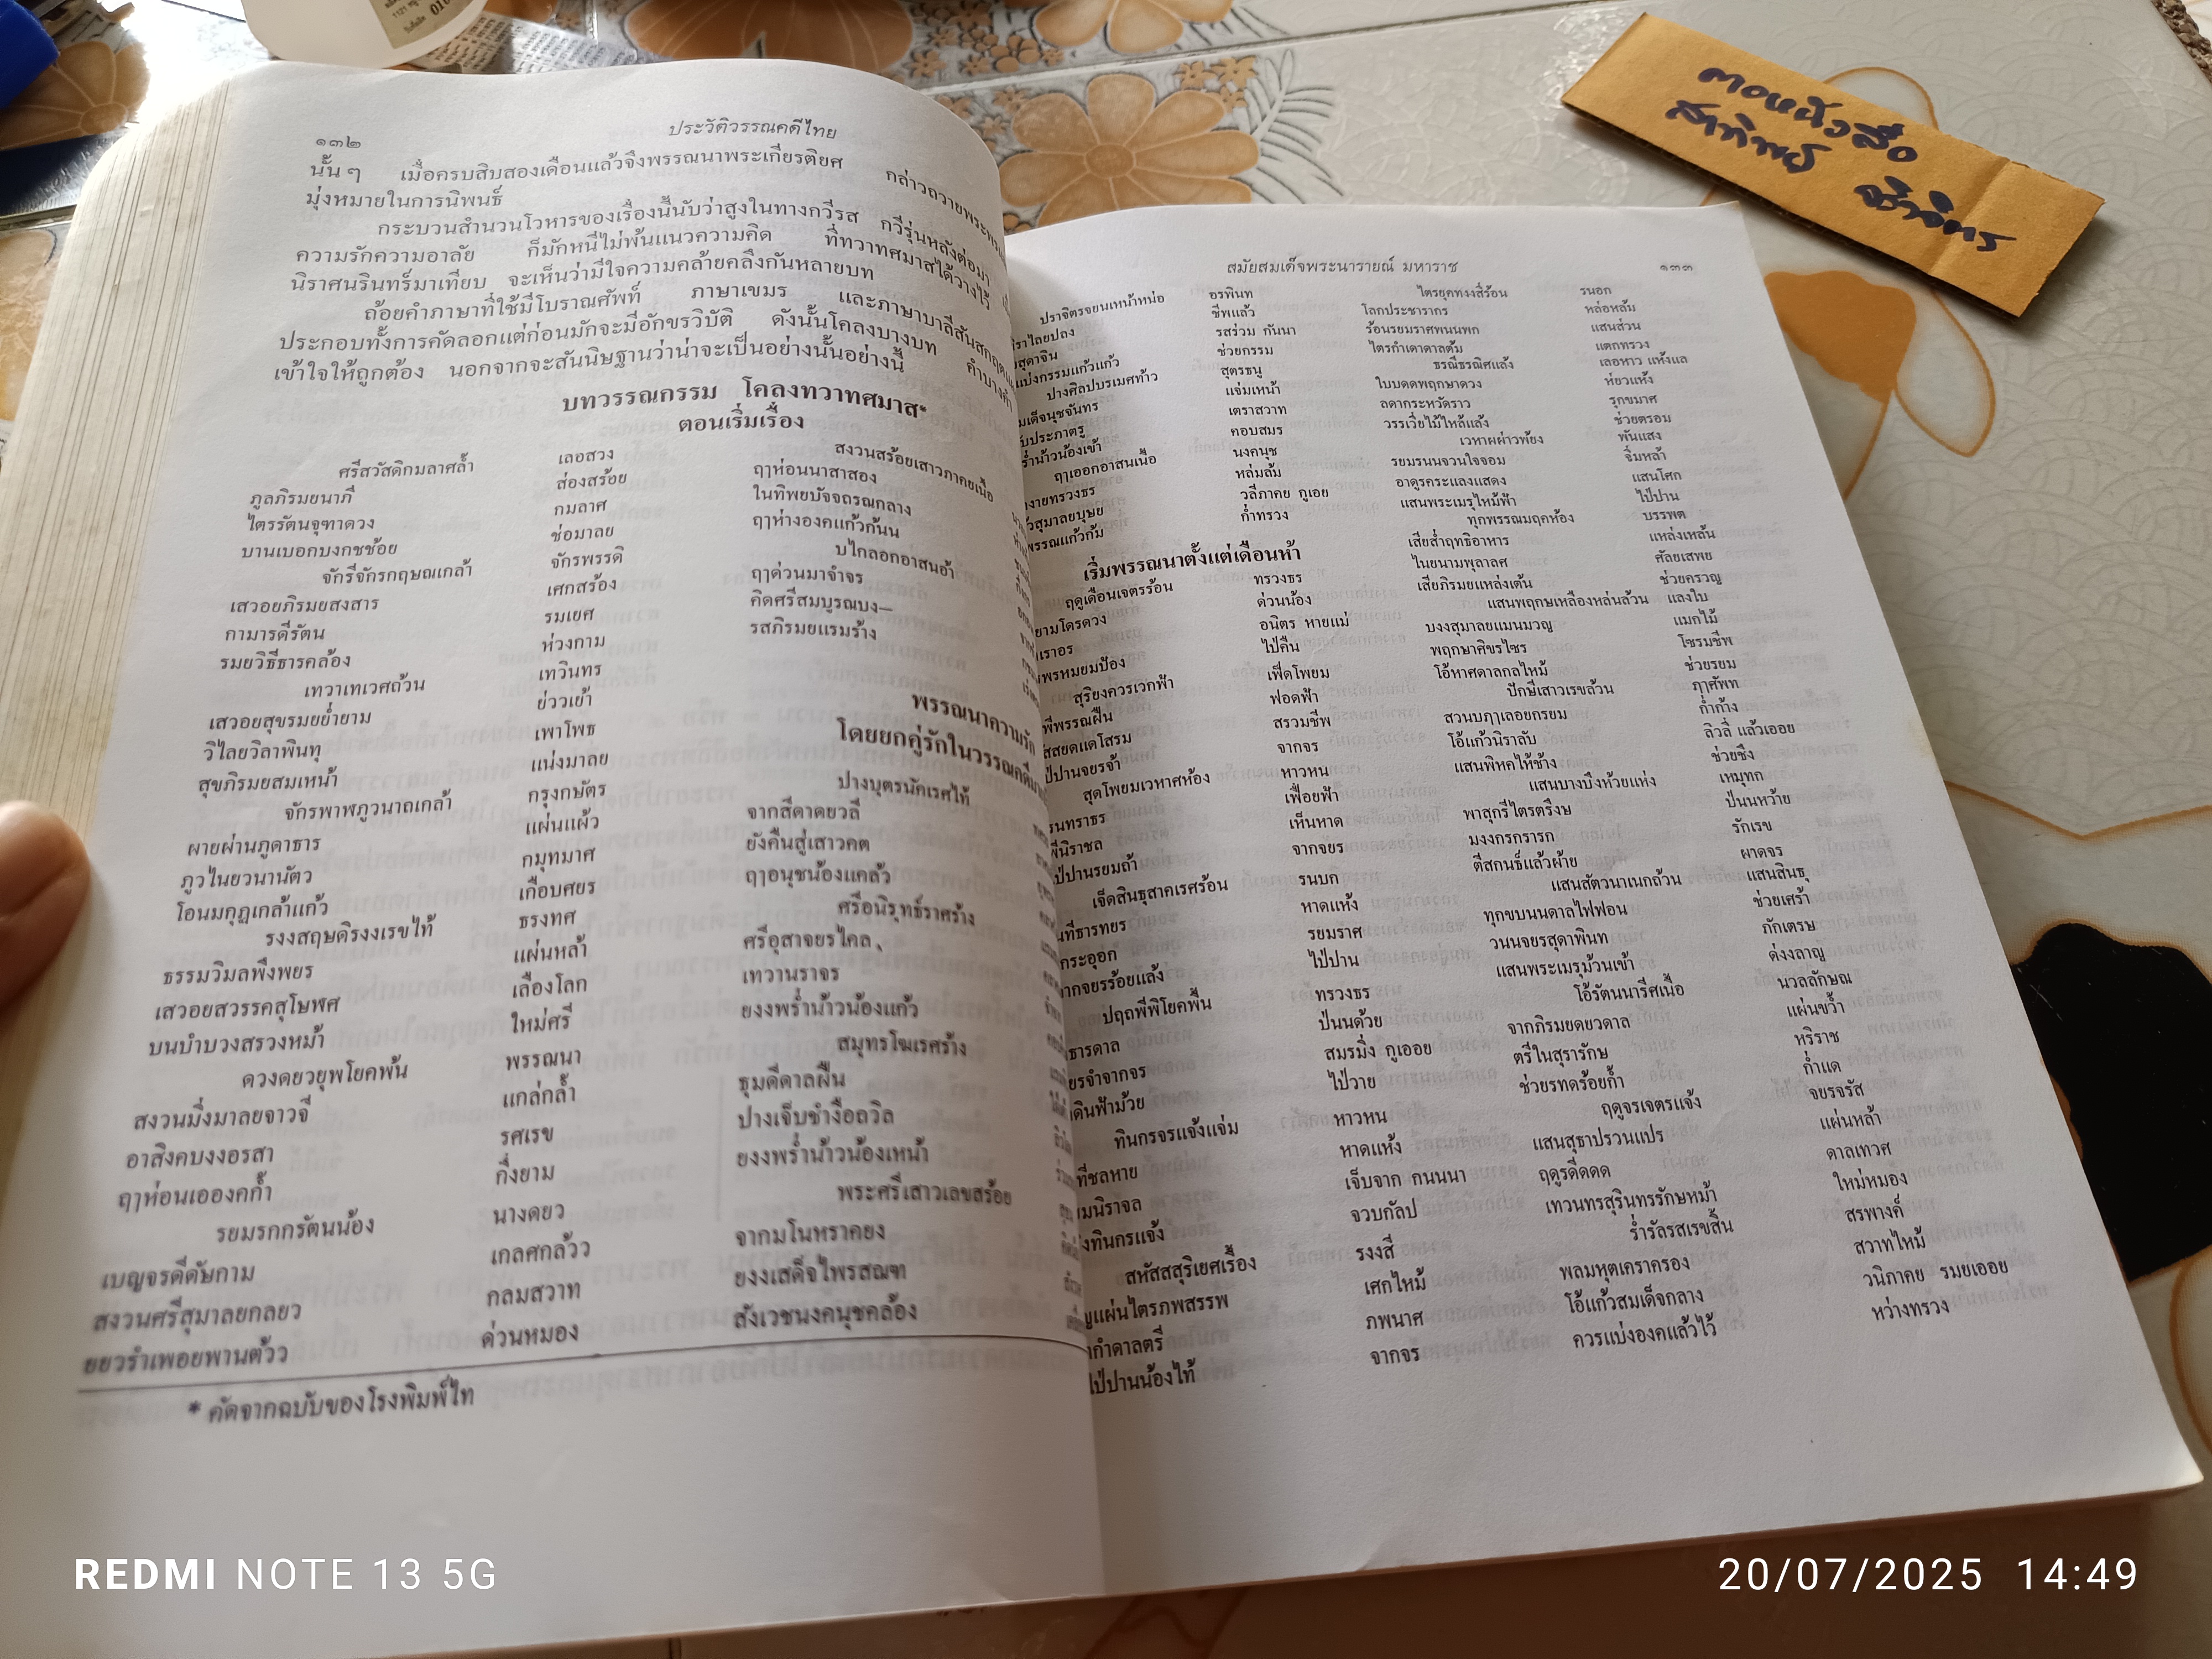 ๑๓๒
ประวัติวรรณคดีไทย
นั้น ๆ เมื่อครบสิบสองเดือนแล้วจึงพรรณนาพระเกียรติยศ กล่าวถวายพระพร
มุ่งหมายในการนิพนธ์
กระบวนสำนวนโวหารของเรื่องนี้นับว่าสูงในทางกวีรส กวีรุ่นหลังต่อมา
ความรักความอาลัย ก็มักหนีไม่พ้นแนวความคิด ที่ทวาทศมาสได้วางไว้
นิราศนรินทร์มาเทียบ จะเห็นว่ามีใจความคล้ายคลึงกันหลายบท
ถ้อยคำภาษาที่ใช้มีโบราณศัพท์ ภาษาเขมร และภาษาบาลีสันสกฤต
ประกอบทั้งการคัดลอกแต่ก่อนมักจะมีอักขรวิบัติ ดังนั้นโคลงบางบท คำบางคำ
เข้าใจให้ถูกต้อง นอกจากจะสันนิษฐานว่าน่าจะเป็นอย่างนั้นอย่างนี้
บทวรรณกรรม โคลงทวาทศมาส*
ตอนเริ่มเรื่อง
ศรีสวัสดิกมลาศล้ำ เลอสวง
ภูลภิรมยนาภี ส่องสร้อย
ไตรรัตนจุฑาดวง กมลาศ
บานเบอกบงกชช้อย ช่อมาลย
จักรีจักรกฤษณเกล้า จักรพรรดิ
เสวอยภิรมยสงสาร เศกสร้อง
กามารดีรัตน รมเยศ
รมยวิธีธารคล้อง ห่วงกาม
เทวาเทเวศถ้วน เทวินทร
เสวอยสุขรมยย่ำยาม ย่าวเย้า
วิไลยวิลาพินทุ เพาโพธ
สุขภิรมยสมเหน้า แน่งมาลย
จักรพาฬภูวนาถเกล้า กรุงกษัตร
ผายผ่านภูดาธาร แผ่นแผ้ว
ภูวไนยวนานัตว กมุทมาศ
โอนมกุฎเกล้าแก้ว เกือบศยร
รงงสฤษดิรงงเรขไท้ ธรงทศ
ธรรมวิมลพึงพยร แผ่นหล้า
เสวอยสวรรคสุโษฬศ เลืองโลก
บนบำบวงสรวงหม้า ใหม่ศรี
ดวงดยวยุพโยคพ้น พรรณนา
สงวนมิ่งมาลยจาวจี่ แกล่กล้ำ
อาสิงคบงงอรสา รศเรข
ฤๅห่อนเอองคก้ำ กิ่งยาม
รยมรกกรัตนน้อง นางดยว
เบญจรดีดัษกาม เกลศกล้วว
สงวนศรีสุมาลยกลยว กลมสวาท
ยยวรำเพอยพานต้วว ด่วนหมอง
* คัดจากฉบับของโรงพิมพ์ไท
สงวนสร้อยเสาวภาคยเนื้อ
ฤๅห่อนนาสาสอง
ในทิพยบัจจถรณกลาง
ฤๅห่างองคแก้วกันน
บไกลอกอาสนอ้า
ฤๅด่วนมาจำจร
คิดศรีสมบูรณบง—
รสภิรมยแรมร้าง
พรรณนาความรัก
โดยยกคู่รักในวรรณคดี
ปางบุตรนัคเรศไท้
จากสีดาดยวลี
ยังคืนสู่เสาวคต
ฤๅอนุชน้องแคล้ว
ศรีอนิรุทธ์ราศร้าง
ศรีอุสาจยรไคล
เทวานราจร
ยงงพร่ำน้าวน้องแก้ว
สมุทรโฆเรศร้าง
ธุมดีดาลฝืน
ปางเจ็บช้ำงือถวิล
ยงงพร่ำน้าวน้องเหน้า
พระศรีเสาวเลขสร้อย
จากมโนหราคยง
ยงงเสด็จไพรสณฑ
สังเวชนงคนุชคล้อง
สมัยสมเด็จพระนารายณ์ มหาราช
๑๓๓
ปราจิตรจยนเหน้าหน่อ อรพินท
ราไลยปลง ชีพแล้ว
สุดาจิน รสร่วม กันนา
แบ่งกรรมแก้วแก้ว ช่วยกรรม
ปางศิลปบรเมศท้าว สุตรธนู
มเด็จนุชจันทร แจ่มเหน้า
บประภาตรู เตราสวาท
ร่ำน้าวน้องเข้า คอบสมร
ฤๅเออกอาสนเนื้อ นงคนุช
งายทรวงธร หล่มล้ม
วสุมาลยบุษย วลีภาคย กูเอย
พรรณแก้วก้ม ก่ำทรวง
เริ่มพรรณนาตั้งแต่เดือนห้า
ฤดูเดือนเจตรร้อน ทรวงธร
ยามโดรดวง ด่วนน้อง
เราอร อนิตร หายแม่
พรหมยมป้อง ไป่คืน
สุริยงควรเวกฟ้า เฟื่ดโพยม
พี่พรรณฝืน ฟอดฟ้า
สสยดแดโสรม สรวมชีพ
ป่ปานจยรจ้า จากจร
สุดโพยมเวหาศห้อง หาวหน
รนทราธร เฟื่อยฟ้า
พี่นิราชล เห็นหาด
ป่ปานรยมถ้า จากจยร
เจ็ดสินธุสาคเรศร้อน รนบก
นทีธารทยร หาดแห้ง
กระอุอก รยมราศ
ากจยรร้อยแล้ง ไป่ปาน
ปฤถพีพิโยคพื้น ทรวงธร
ธารดาล ป่นนด้วย
ยรจำจากจร สมรมิ่ง กูเออย
ดินฟ้าม้วย ไป่วาย
ทินกรจรแจ้งแจ่ม หาวหน
ที่ชลหาย หาดแห้ง
มนิราจล เจ็บจาก กนนนา
งทินกรแจ้ง จวบกัลป
สหัสสสุริเยศเรื้อง รงงสี
ญแผ่นไตรภพสรรพ เศกไหม้
กำดาลตรี ภพนาศ
ไป่ปานน้องไท้ จากจร
ไตรยุคทงงสี่ร้อน รนอก
โลกประชารากร หล่อหล้ม
ร้อนรยมราศพนนพก แสนส่วน
ไตรกำเดาดาลต้ม แตกทรวง
ธรณีธรณิศแล้ง เลอหาว แห้งแล
ใบบดดพฤกษาดวง ห่ยวแห้ง
ลดากระหวัดราว รุกขมาศ
วรรเวี่ยไม้ไหล้แล้ง ช่วยตรอม
เวหาผผ่าวพ้ยง พันแสง
รยมรนนจวนใจจอม จิ่มหล้า
อาดูรคระแลงแสดง แสนโศก
แสนพระเมรุไหม้ฟ้า ไป่ปาน
ทุกพรรณมฤคห้อง บรรพต
เสียส่ำฤทธิอาหาร แหล่งเหล้น
ในยนามพุลาลศ ศัลยเสพย
เสียภิรมยแหล่งเต้น ช่วยครวญ
แสนพฤกษเหลืองหล่นล้วน แลงใบ
บงงสุมาลยแมนมวญ แมกไม้
พฤกษาศิขรไชร โซรมชีพ
โอ้หาศดาลกลไหม้ ช่วยรยม
ปักษีเสาวเรขล้วน ฦๅศัพท
สวนบฦๅเลอยกรยม ก่ำก้าง
โอ้แก้วนิราลับ ลิวลี่ แล้วเออย
แสนพิหคไห้ช้าง ช่วยชึง
แสนบางบึงห้วยแห่ง เหมุทก
พาสุกรีไตรตรึงษ ป่นนหว้าย
มงงกรกรารก รักเรข
ตีสกนธ์แล้วผ้าย ผาดจร
แสนสัตวนาเนกถ้วน แสนสินธุ
ทุกขบนนดาลไฟฟอน ช่วยเศร้า
วนนจยรสุดาพินท กักเตรษ
แสนพระเมรุม้วนเข้า ด่งงลาญ
โอ้รัตนนารีศเนื้อ นวลลักษณ
จากภิรมยดยวดาล แผ่นขว้ำ
ตรีในสุรารักษ หริราช
ช่วยรทดร้อยก้ำ ก่ำแด
ฤดูจรเจตรแจ้ง จยรจรัส
แสนสุธาปรวนแปร แผ่นหล้า
ฤดูรดีดดด ดาลเทวศ
เทวนทรสุรินทรรักษหม้า ใหม่หมอง
ร่ำรัลรสเรขสิ้น สรพางค์
พลมหุตเคราครอง สวาทไหม้
โอ้แก้วสมเด็จกลาง วนิภาคย รมยเออย
ควรแบ่งองคแล้วไว้ หว่างทรวง
REDMI NOTE 13 5G
20/07/2025 14:49